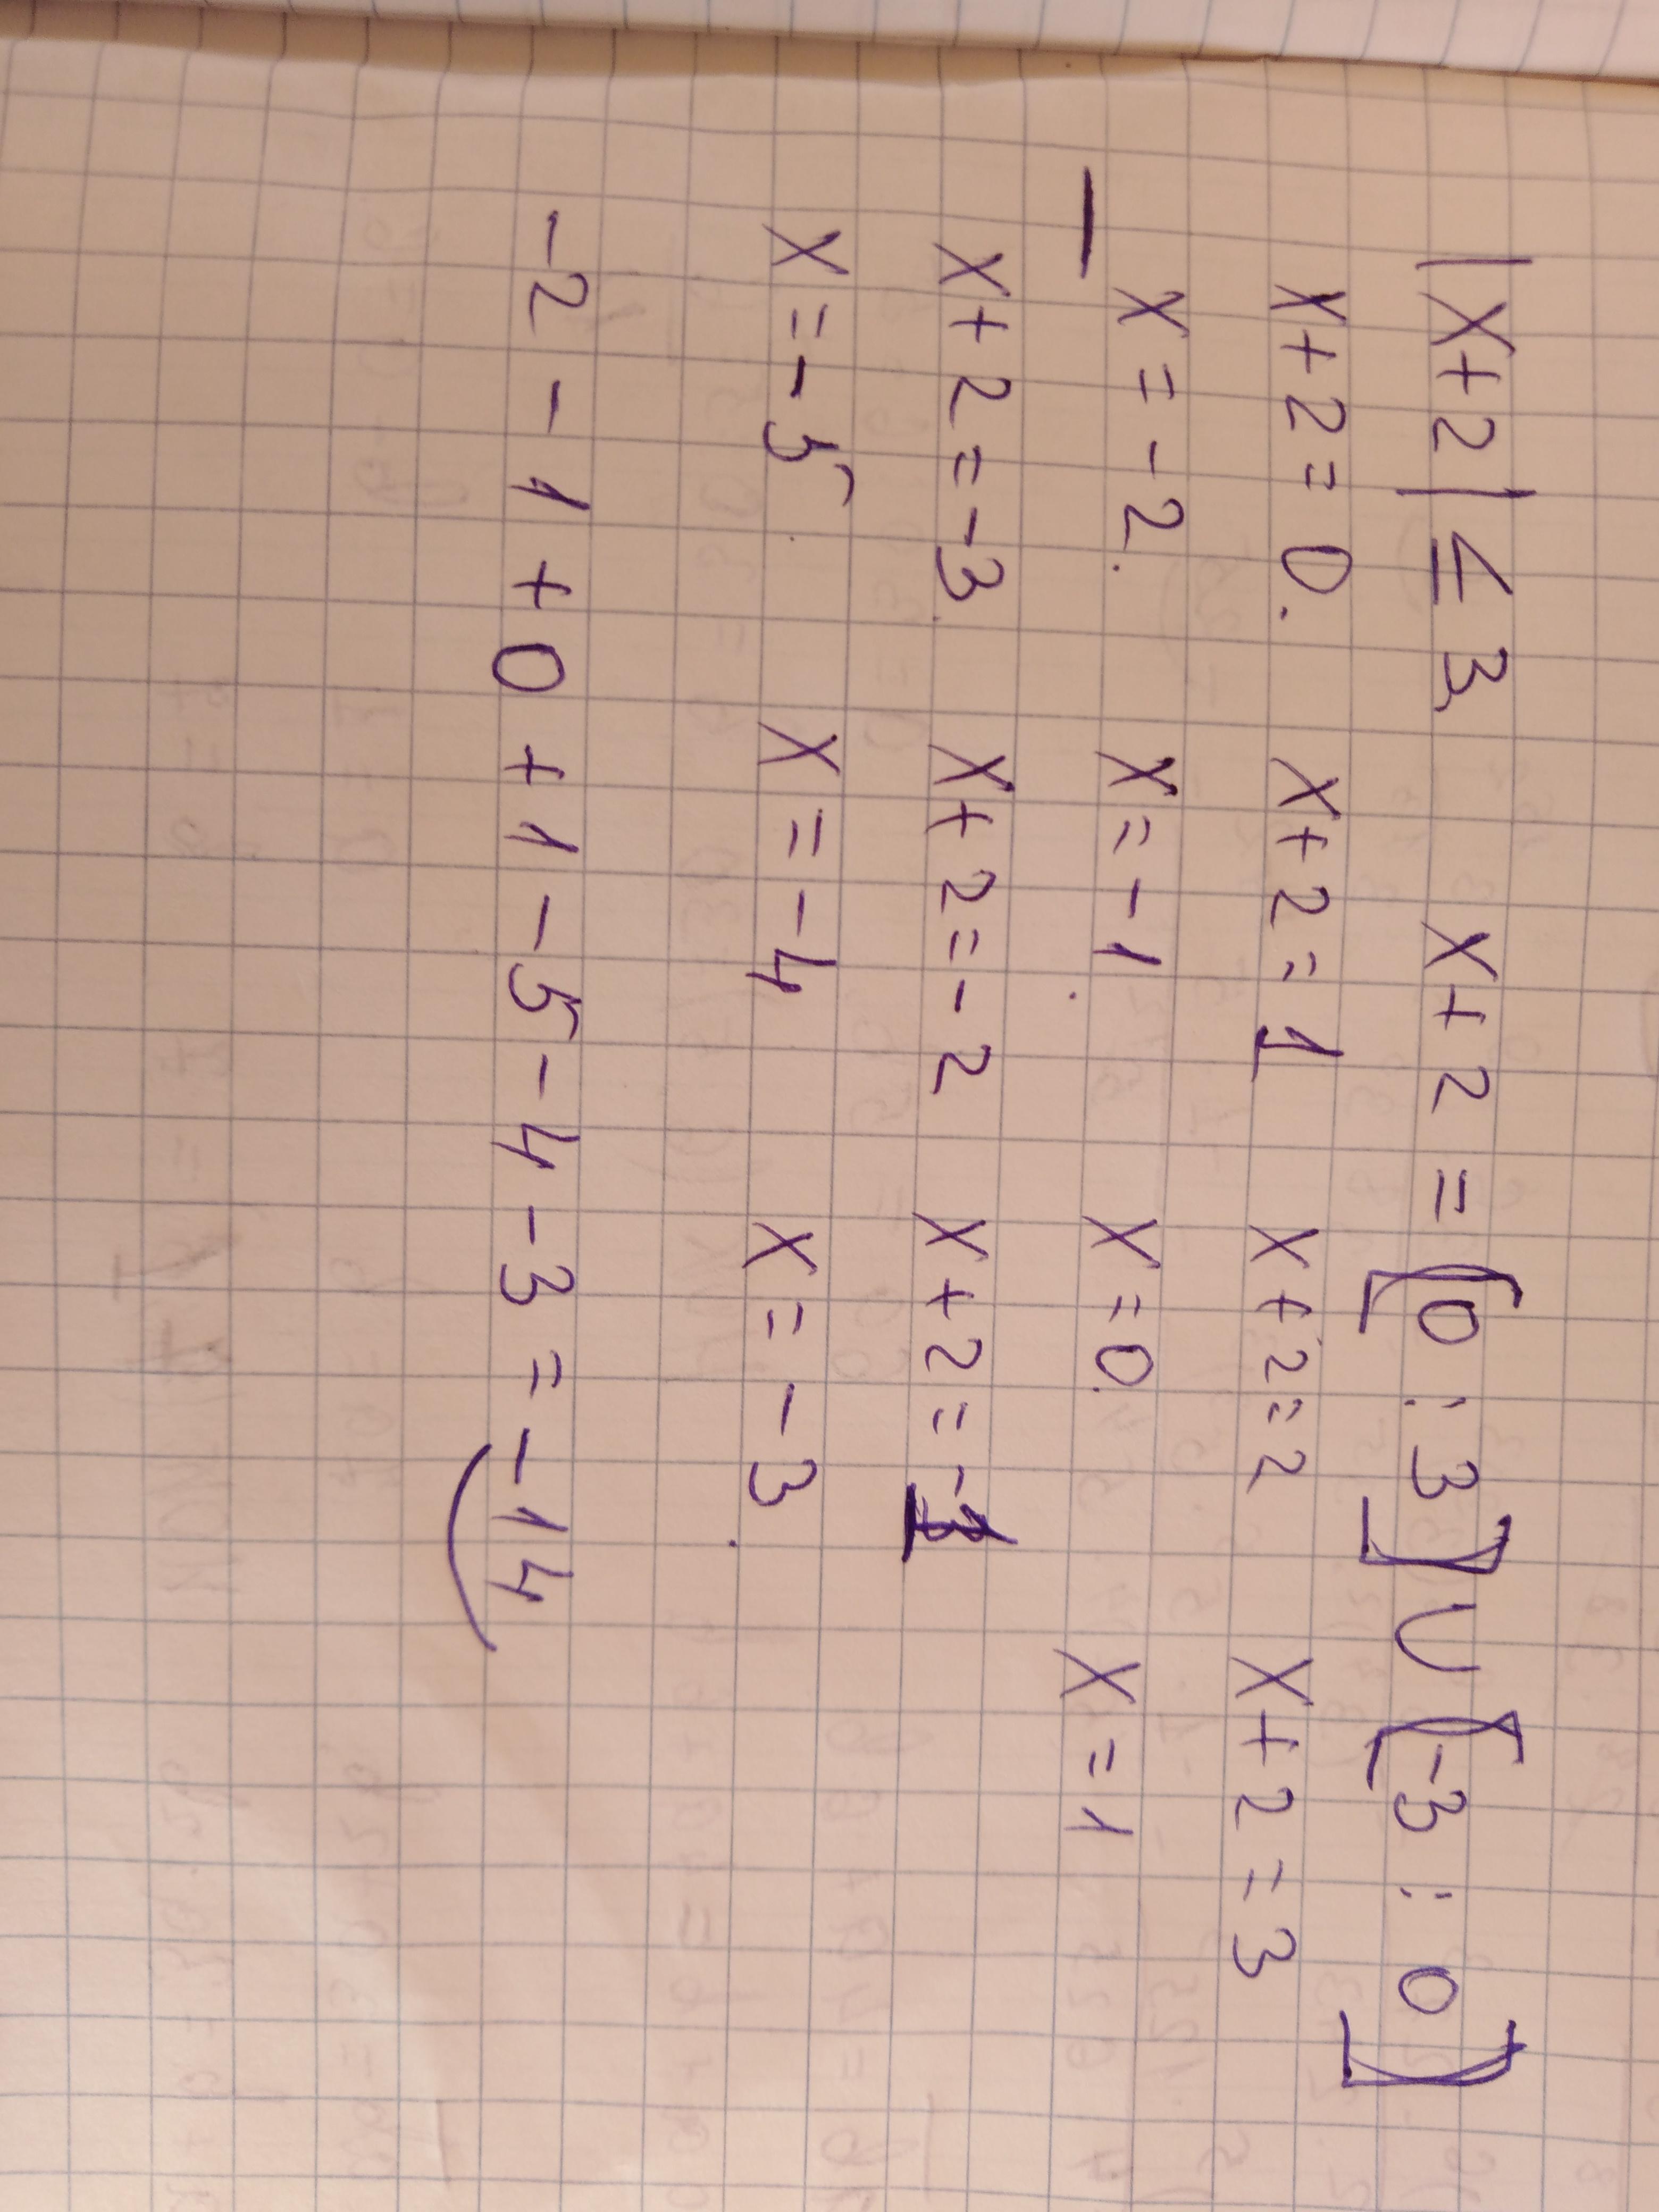 |x+2| ≤ 3 x+2 = [0 ; 3] U [-3 ; 0]
x+2=0. x+2=1 x+2=2 x+2=3
x=-2. x=-1. x=0. x=1
x+2=-3. x+2=-2 x+2=-1
x=-5. x=-4 x=-3.
-2-1+0+1-5-4-3=-14